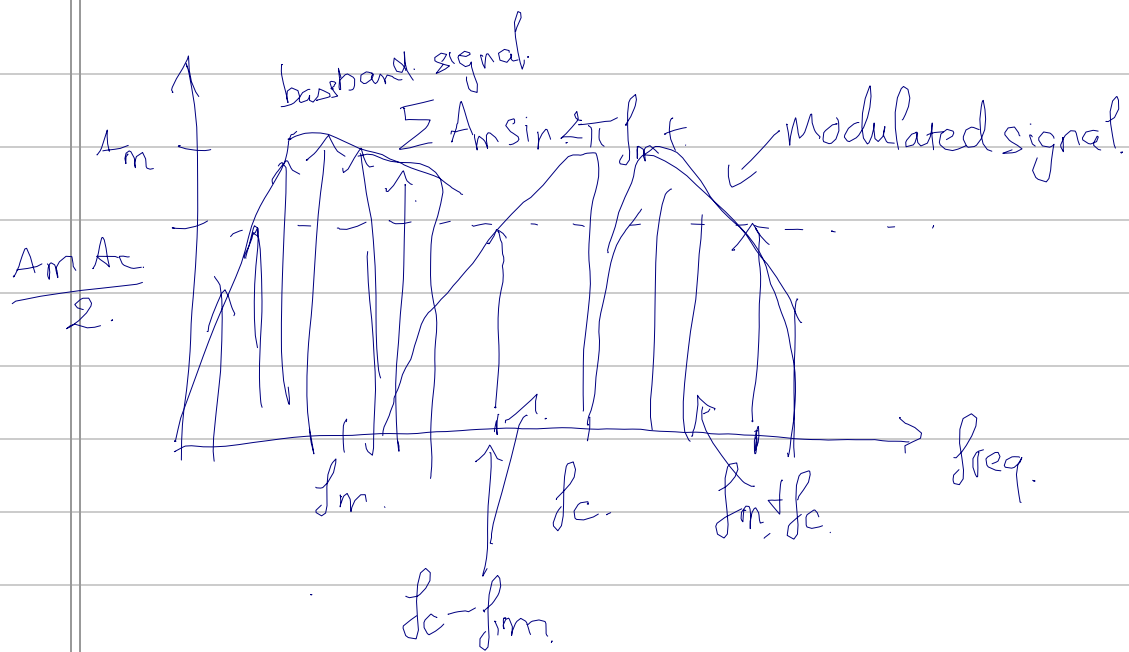 bassband signal.
Σ Am sin 2π fm t.
modulated signal.
Am
Am Ac
2.
fm.
fc.
fm + fc.
freq.
fc - fm.